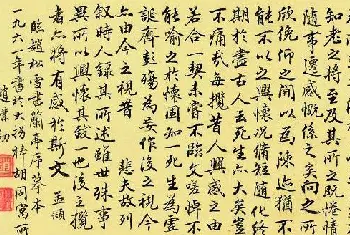 知老之將至及其所之既惓情
隨事遷感慨係之矣向之所
欣俛仰之間以為陳迹猶不
能不以之興懷況脩短隨化終
期於盡古人云死生亦大矣豈
不痛哉每攬昔人興感之由
若合一契未嘗不臨文嗟悼不
能喻之於懷固知一死生為虛
誕齊彭殤為妄作後之視今
亦由今之視昔 悲夫故列
敘時人錄其所述雖世殊事
異所以興懷其致一也後之攬
者亦將有感於斯文 孟頫
臨趙松雪書蘭亭序摹本
一九六一年書於大拐棒胡同寓所
趙樸初